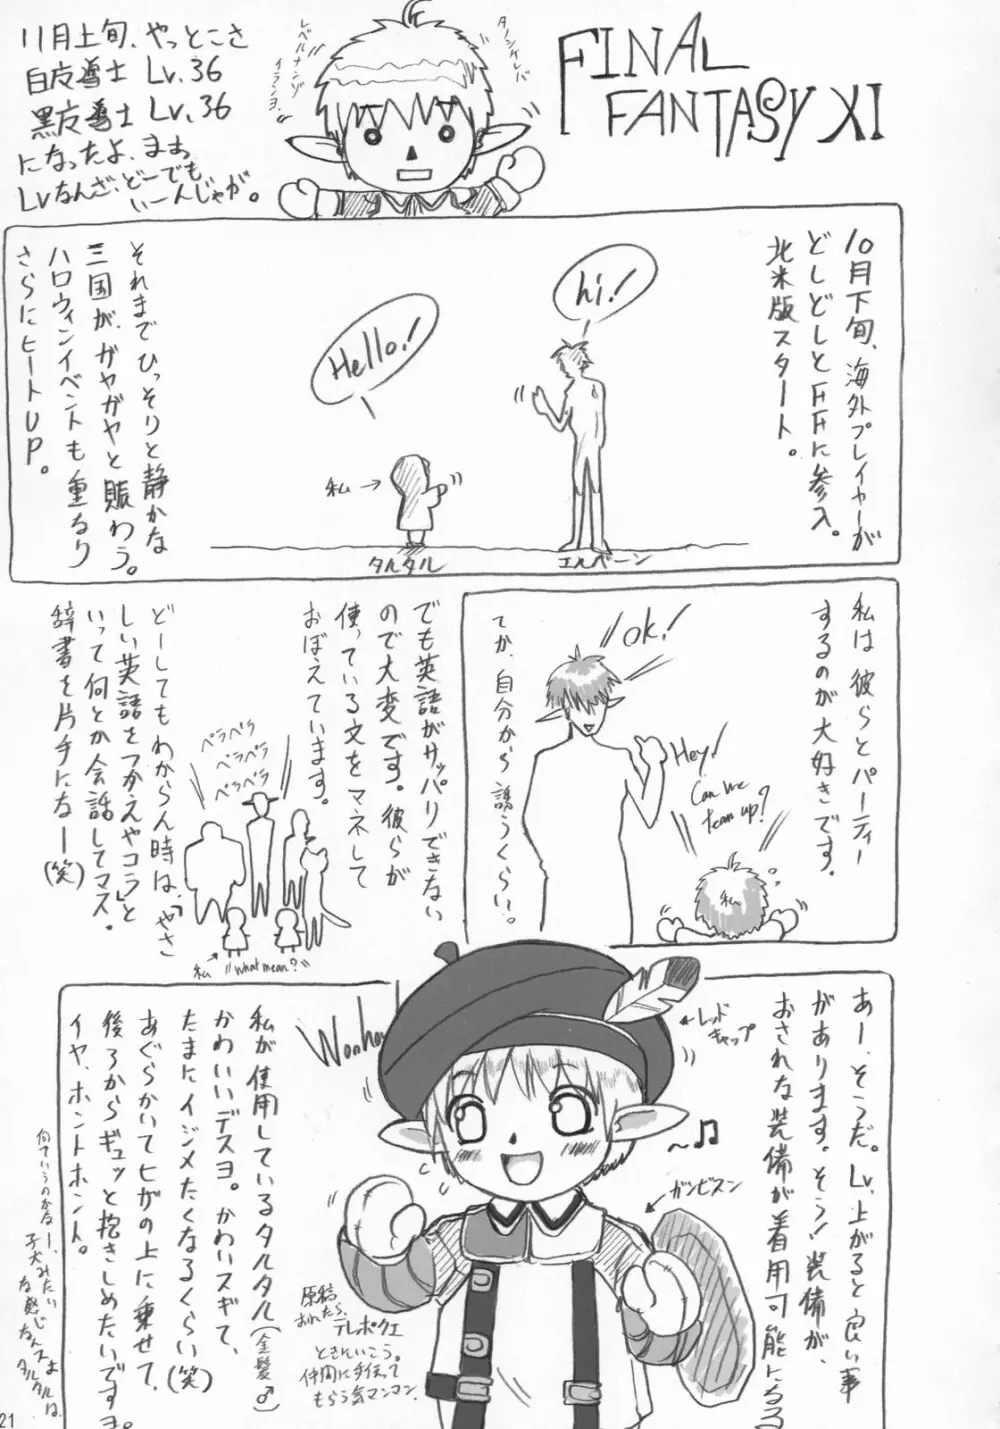 11月上旬、やっとこさ
白魔導士 Lv.36
黒魔導士 Lv.36
になったよ、まぁ
Lvなんざ、どーでも
いーんじゃが。
レベルナンゾ
イランヨ。
タノシケレバ
FINAL
FANTASY XI
10月下旬、海外プレイヤーが
どしどしとFFに参入。
北米版スタート。
hi!
Hello!
私→
タルタル
エルバーン
それまでひっそりと静かな
三国が、ガヤガヤと賑わう。
ハロウィンイベントも重なり
さらにヒートUP。
私は彼らとパーティー
するのが大好きです。
ok!
Hey!
Can we
team up?
私
てか、自分から誘うくらい。
でも英語がサッパリできない
ので大変です。彼らが
使っている文をマネして
おぼえています。
どーしてもわからん時は、「やさ
しい英語をつかえやコラ」と
いって何とか会話してマス。
辞書を片手になー(笑)
ペラペラ
ペラペラ
ペラペラ
私
"what mean?"
あー、そうだ。Lv.上がると良い事
があります。そう!装備が、
おされな装備が着用可能になる
←レッド
キャップ
♪
ガンビスン
私が使用しているタルタル(金髪♂)
かわいいデスヨ。かわいスギて、
たまにイジメたくなるくらい(笑)
あぐらかいてヒザの上に乗せて、
後ろからギュッと抱きしめたいですヨ。
イヤ、ホントホント。
何ていうのかなー、
子犬みたい
な感じなんスよ
タルタルは。
原稿
おわたら、
テレポクエ
ときにいこう。
仲間に手伝って
もらう気マンマン。
21